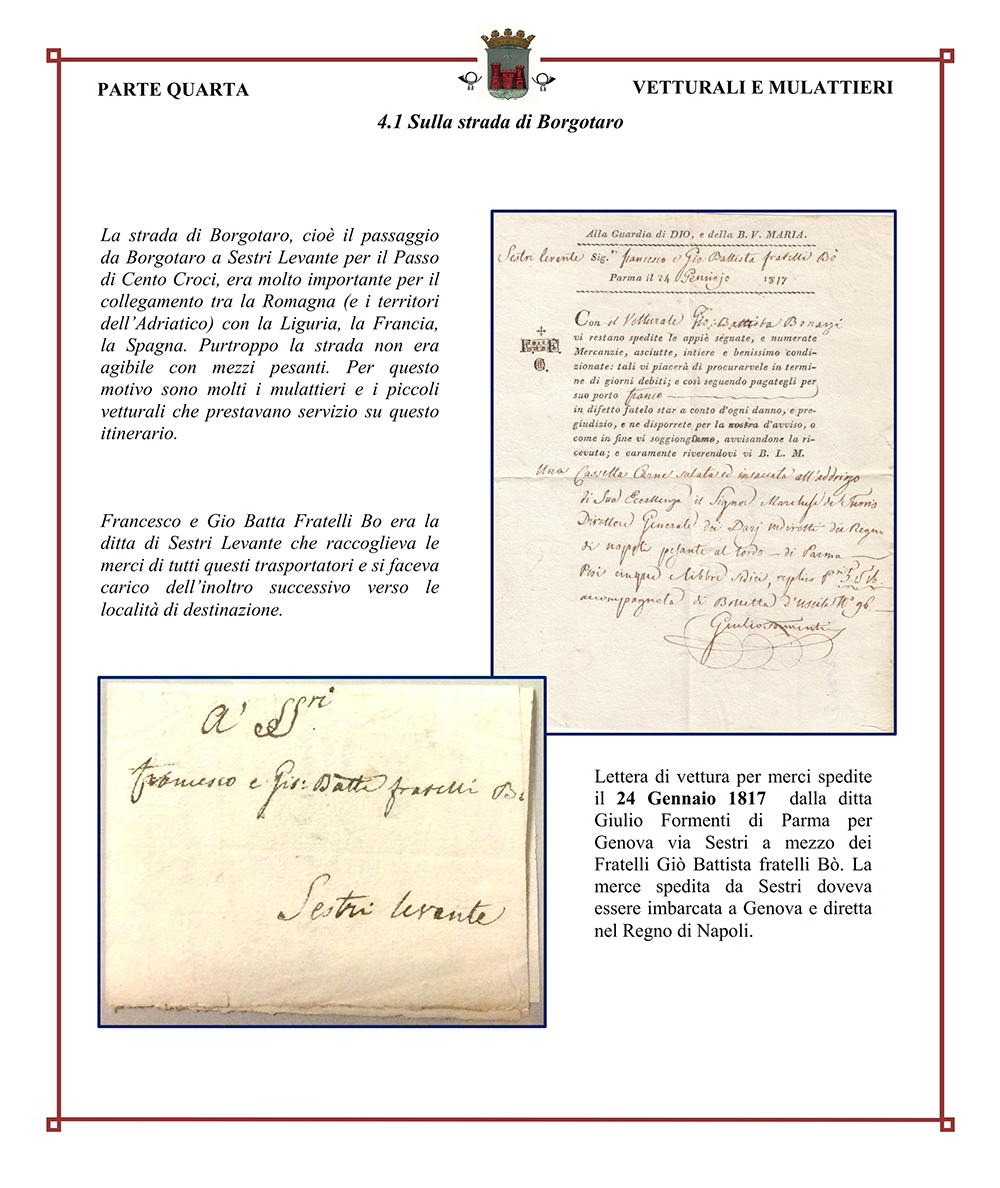 PARTE QUARTA
VETTURALI E MULATTIERI
4.1 Sulla strada di Borgotaro
La strada di Borgotaro, cioè il passaggio
da Borgotaro a Sestri Levante per il Passo
di Cento Croci, era molto importante per il
collegamento tra la Romagna (e i territori
dell'Adriatico) con la Liguria, la Francia,
la Spagna. Purtroppo la strada non era
agibile con mezzi pesanti. Per questo
motivo sono molti i mulattieri e i piccoli
vetturali che prestavano servizio su questo
itinerario.
Francesco e Gio Batta Fratelli Bo era la
ditta di Sestri Levante che raccoglieva le
merci di tutti questi trasportatori e si faceva
carico dell'inoltro successivo verso le
località di destinazione.
Alla Guardia di DIO, e della B. V. MARIA.
Sestri levante Sig.ri francesco e Gio: Battista fratelli Bò
Parma il 24 Gennajo 1817
Con il Vetturale Gio: Battista Bonazzi
vi restano spedite le appiè segnate, e numerate
Mercanzie, asciutte, intiere e benissimo condi-
zionate: tali vi piacerà di procurarvele in termi-
ne di giorni debiti; e così seguendo pagategli per
suo porto franco
in difetto fatelo star a conto d'ogni danno, e pre-
giudizio, e ne disporrete per la nostra d'avviso, o
come in fine vi soggiongiamo, avvisandone la ri-
cevuta; e caramente riverendovi vi B. L. M.
Una Cassetta Carne salata ed insaccata all'addrizzo
di Sua Eccellenza il Signor Marchese de Turris
Direttore Generale dei Dazj indiretti del Regno
di napoli pesante al lordo - di Parma
Pesi cinque e libbre sedici, replico
accompagnata di Bolletta d'uscita N° 96.
Giulio Formenti
A' SSri
francesco e Gio: Batta fratelli Bò
Sestri levante
Lettera di vettura per merci spedite
il 24 Gennaio 1817 dalla ditta
Giulio Formenti di Parma per
Genova via Sestri a mezzo dei
Fratelli Giò Battista fratelli Bò. La
merce spedita da Sestri doveva
essere imbarcata a Genova e diretta
nel Regno di Napoli.